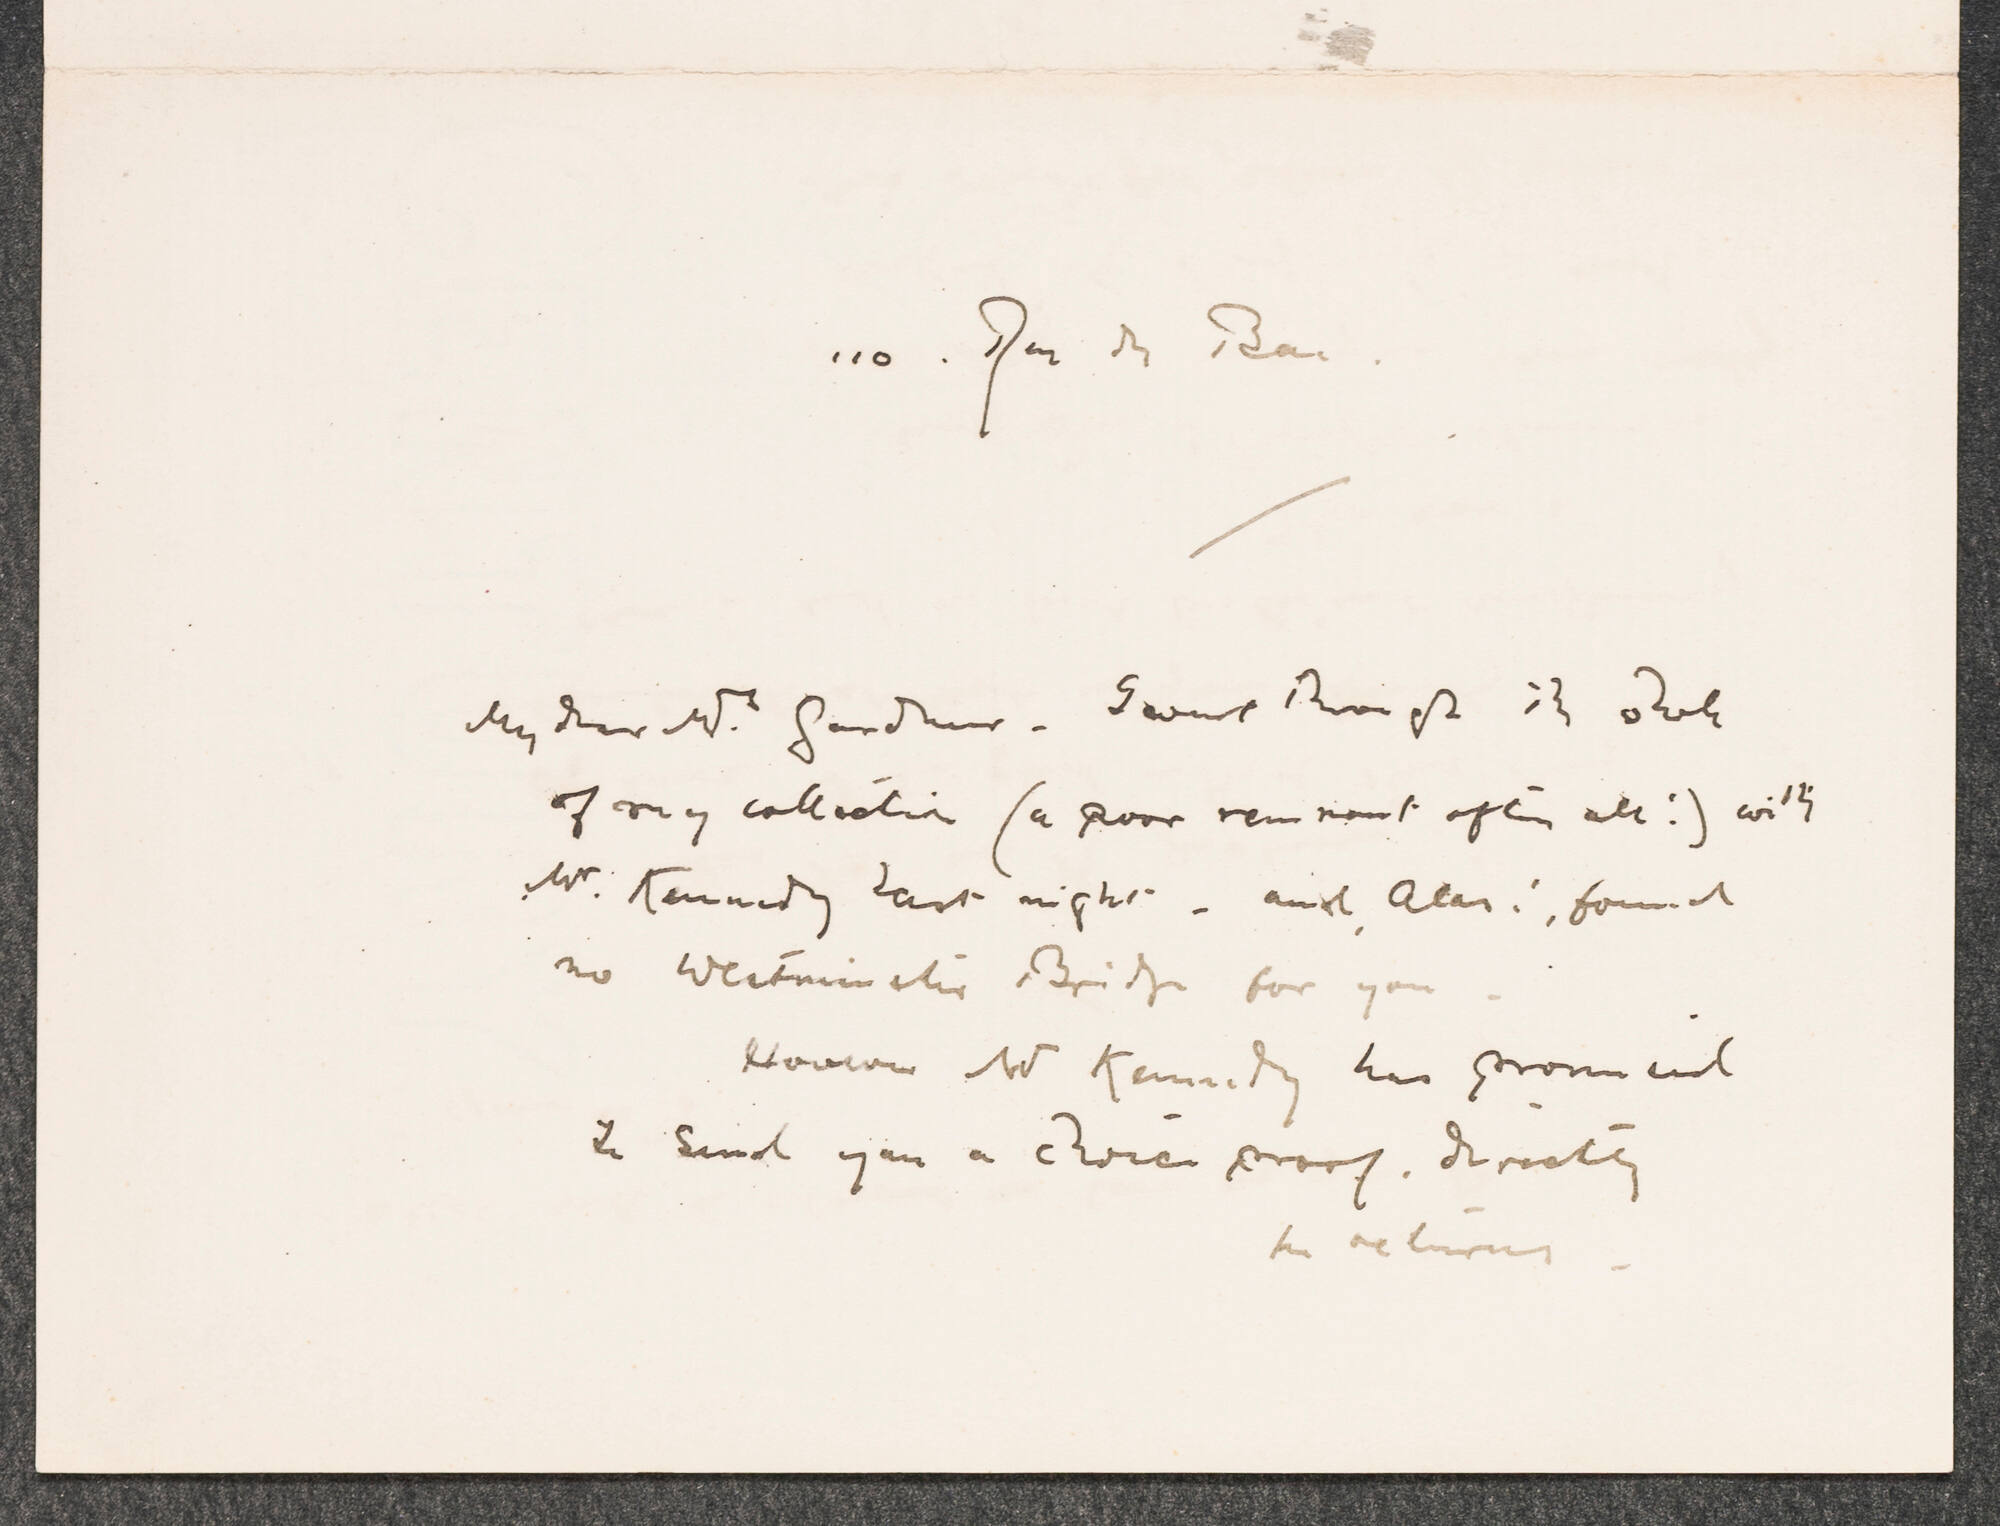 110. Rue du Bac.
My dear Mrs. Gardner - I went through the whole
of my collection (a poor remnant after all!) with
Mr. Kennedy last night - and, Alas!, found
no Westminster Bridge for you -
However Mr Kennedy has promised
to send you a choice proof, directly
he returns -